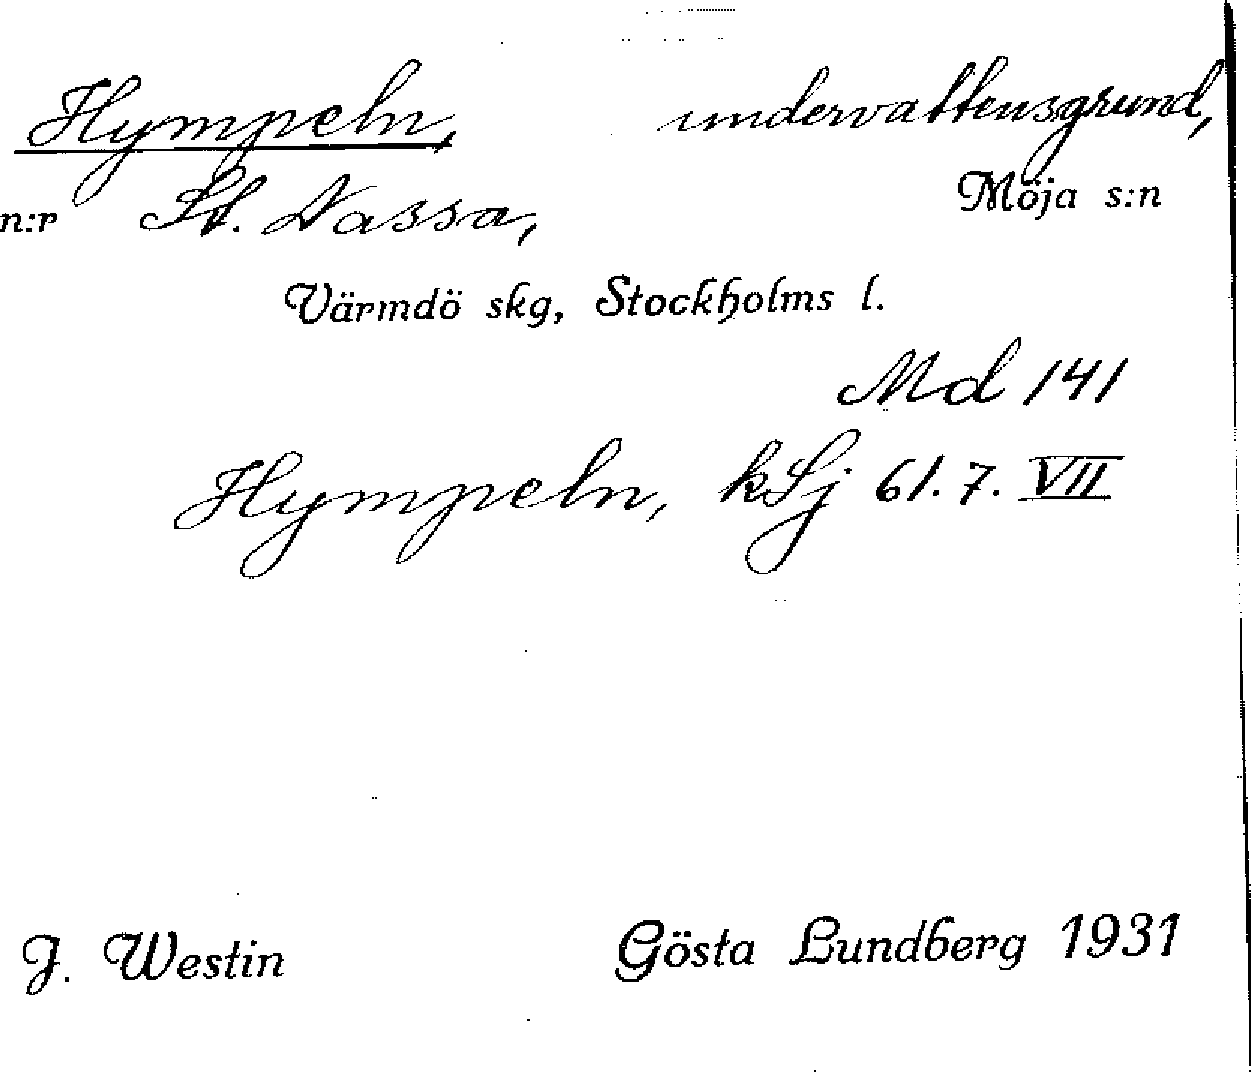 Hympeln, undervattensgrund,
n:r St. Nassa, Möja s:n
Värmdö skg, Stockholms l.
Md 141
Hympeln, kSj 61. 7. VII
J. Westin Gösta Lundberg 1931